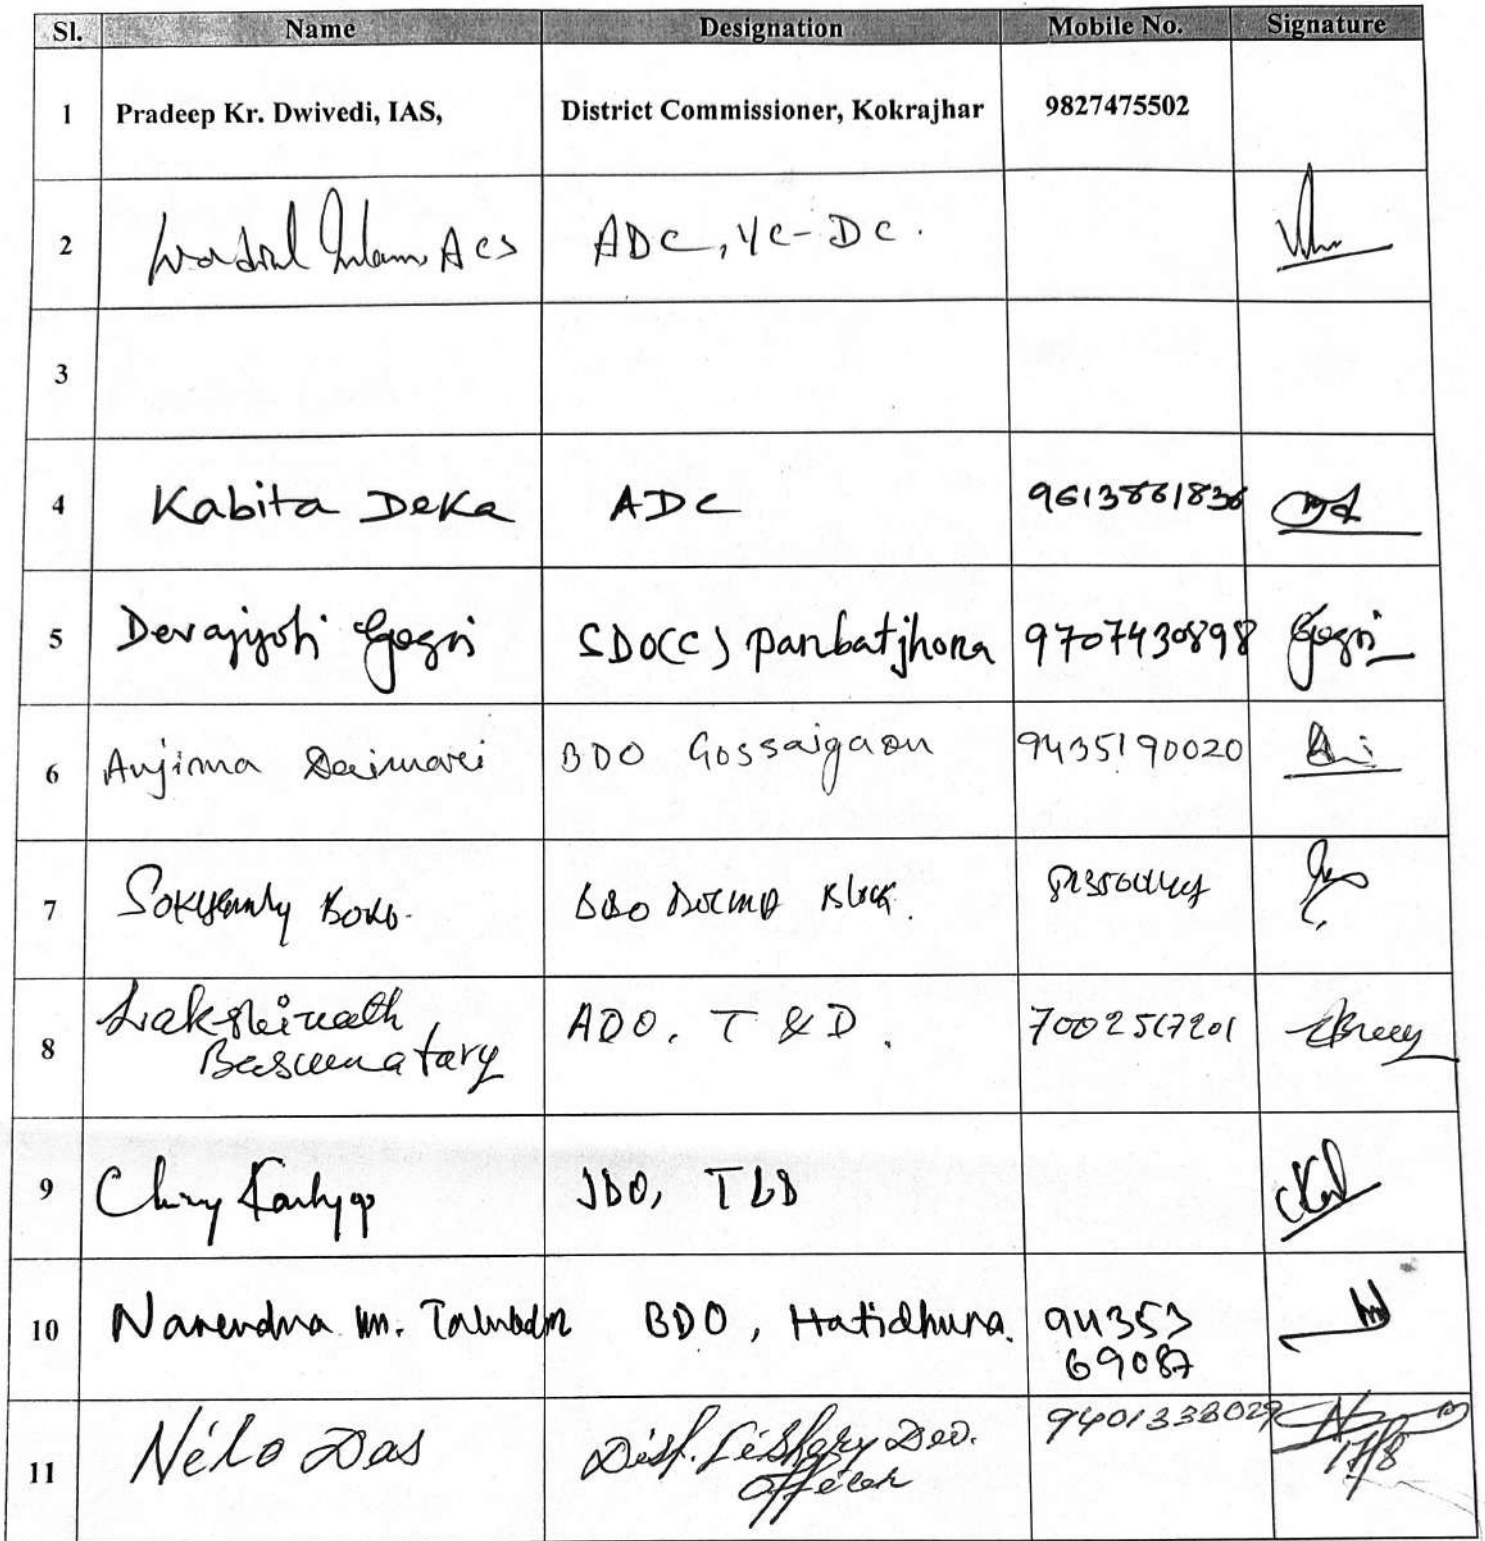 Sl. Name Designation Mobile No. Signature
1 Pradeep Kr. Dwivedi, IAS, District Commissioner, Kokrajhar 9827475502
2 Islam, ACS ADC, I/C-DC.
3
4 Kabita Deka ADC 9613861836
5 Devajyoti Gogoi SDO(C) Parbatjhora 9707430898 Gogoi
6 Anjima Daimari BDO Gossaigaon 9435190020
7 Boro. BDO Dotma Block.
8 Lakshinath
Basumatary ADO, T & D. 7002517201
9 JDO, T&D
10 Narendra BDO, Hatidhura. 94353
69087
11 Das Dist. Fishery Dev.
Officer 9401333029
17/8